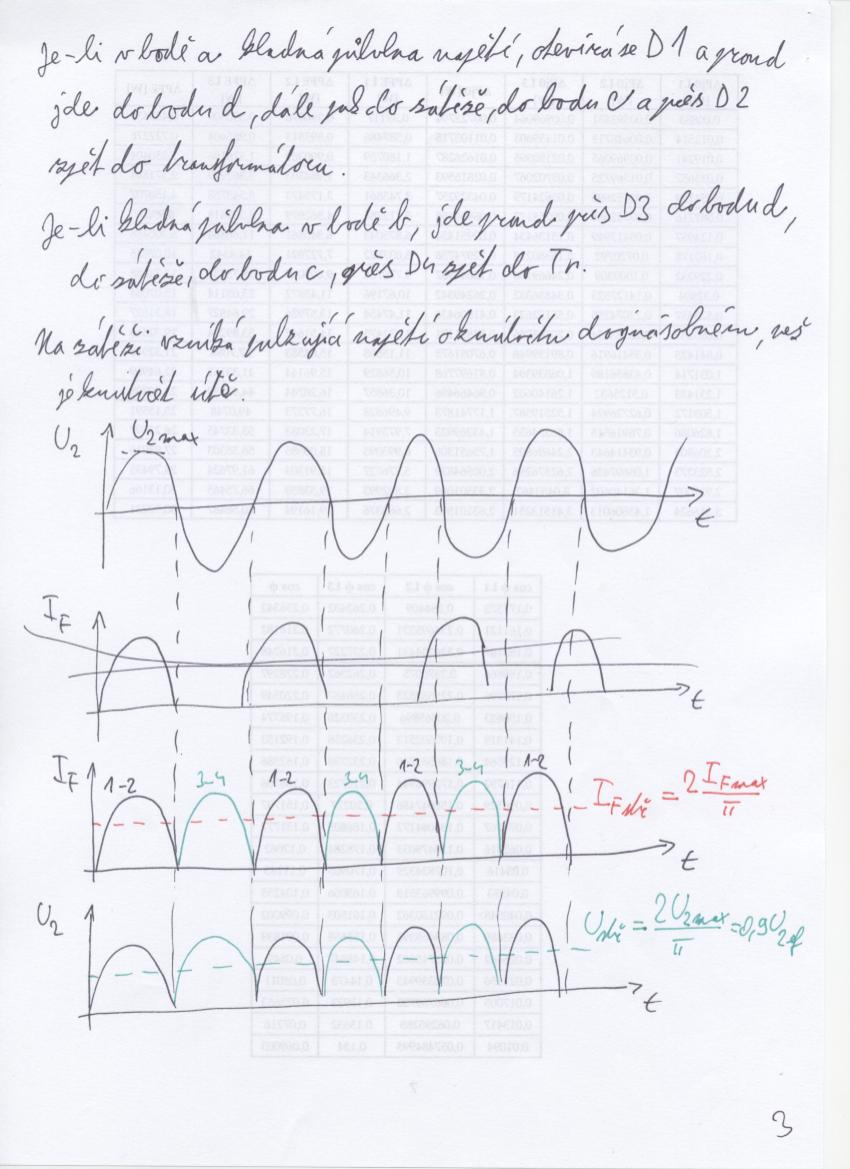 Je-li v bodě a kladná půlvlna napětí, otevírá se D1 a proud
jde do bodu d, dále pak do zátěže, do bodu c a přes D2
zpět do transformátoru.
Je-li kladná půlvlna v bodě b, jde proud přes D3 do bodu d,
do zátěže, do bodu c, přes D4 zpět do Tr.
Na zátěži vzniká pulzující napětí o kmitočtu dvojnásobném, než
je kmitočet sítě.
U2 U2max
t
IF
t
IF 1-2 3-4 1-2 3-4 1-2 3-4 1-2
IFstř = 2 IFmax / π
t
U2
Ustř = 2U2max / π = 0,9U2ef
t
3